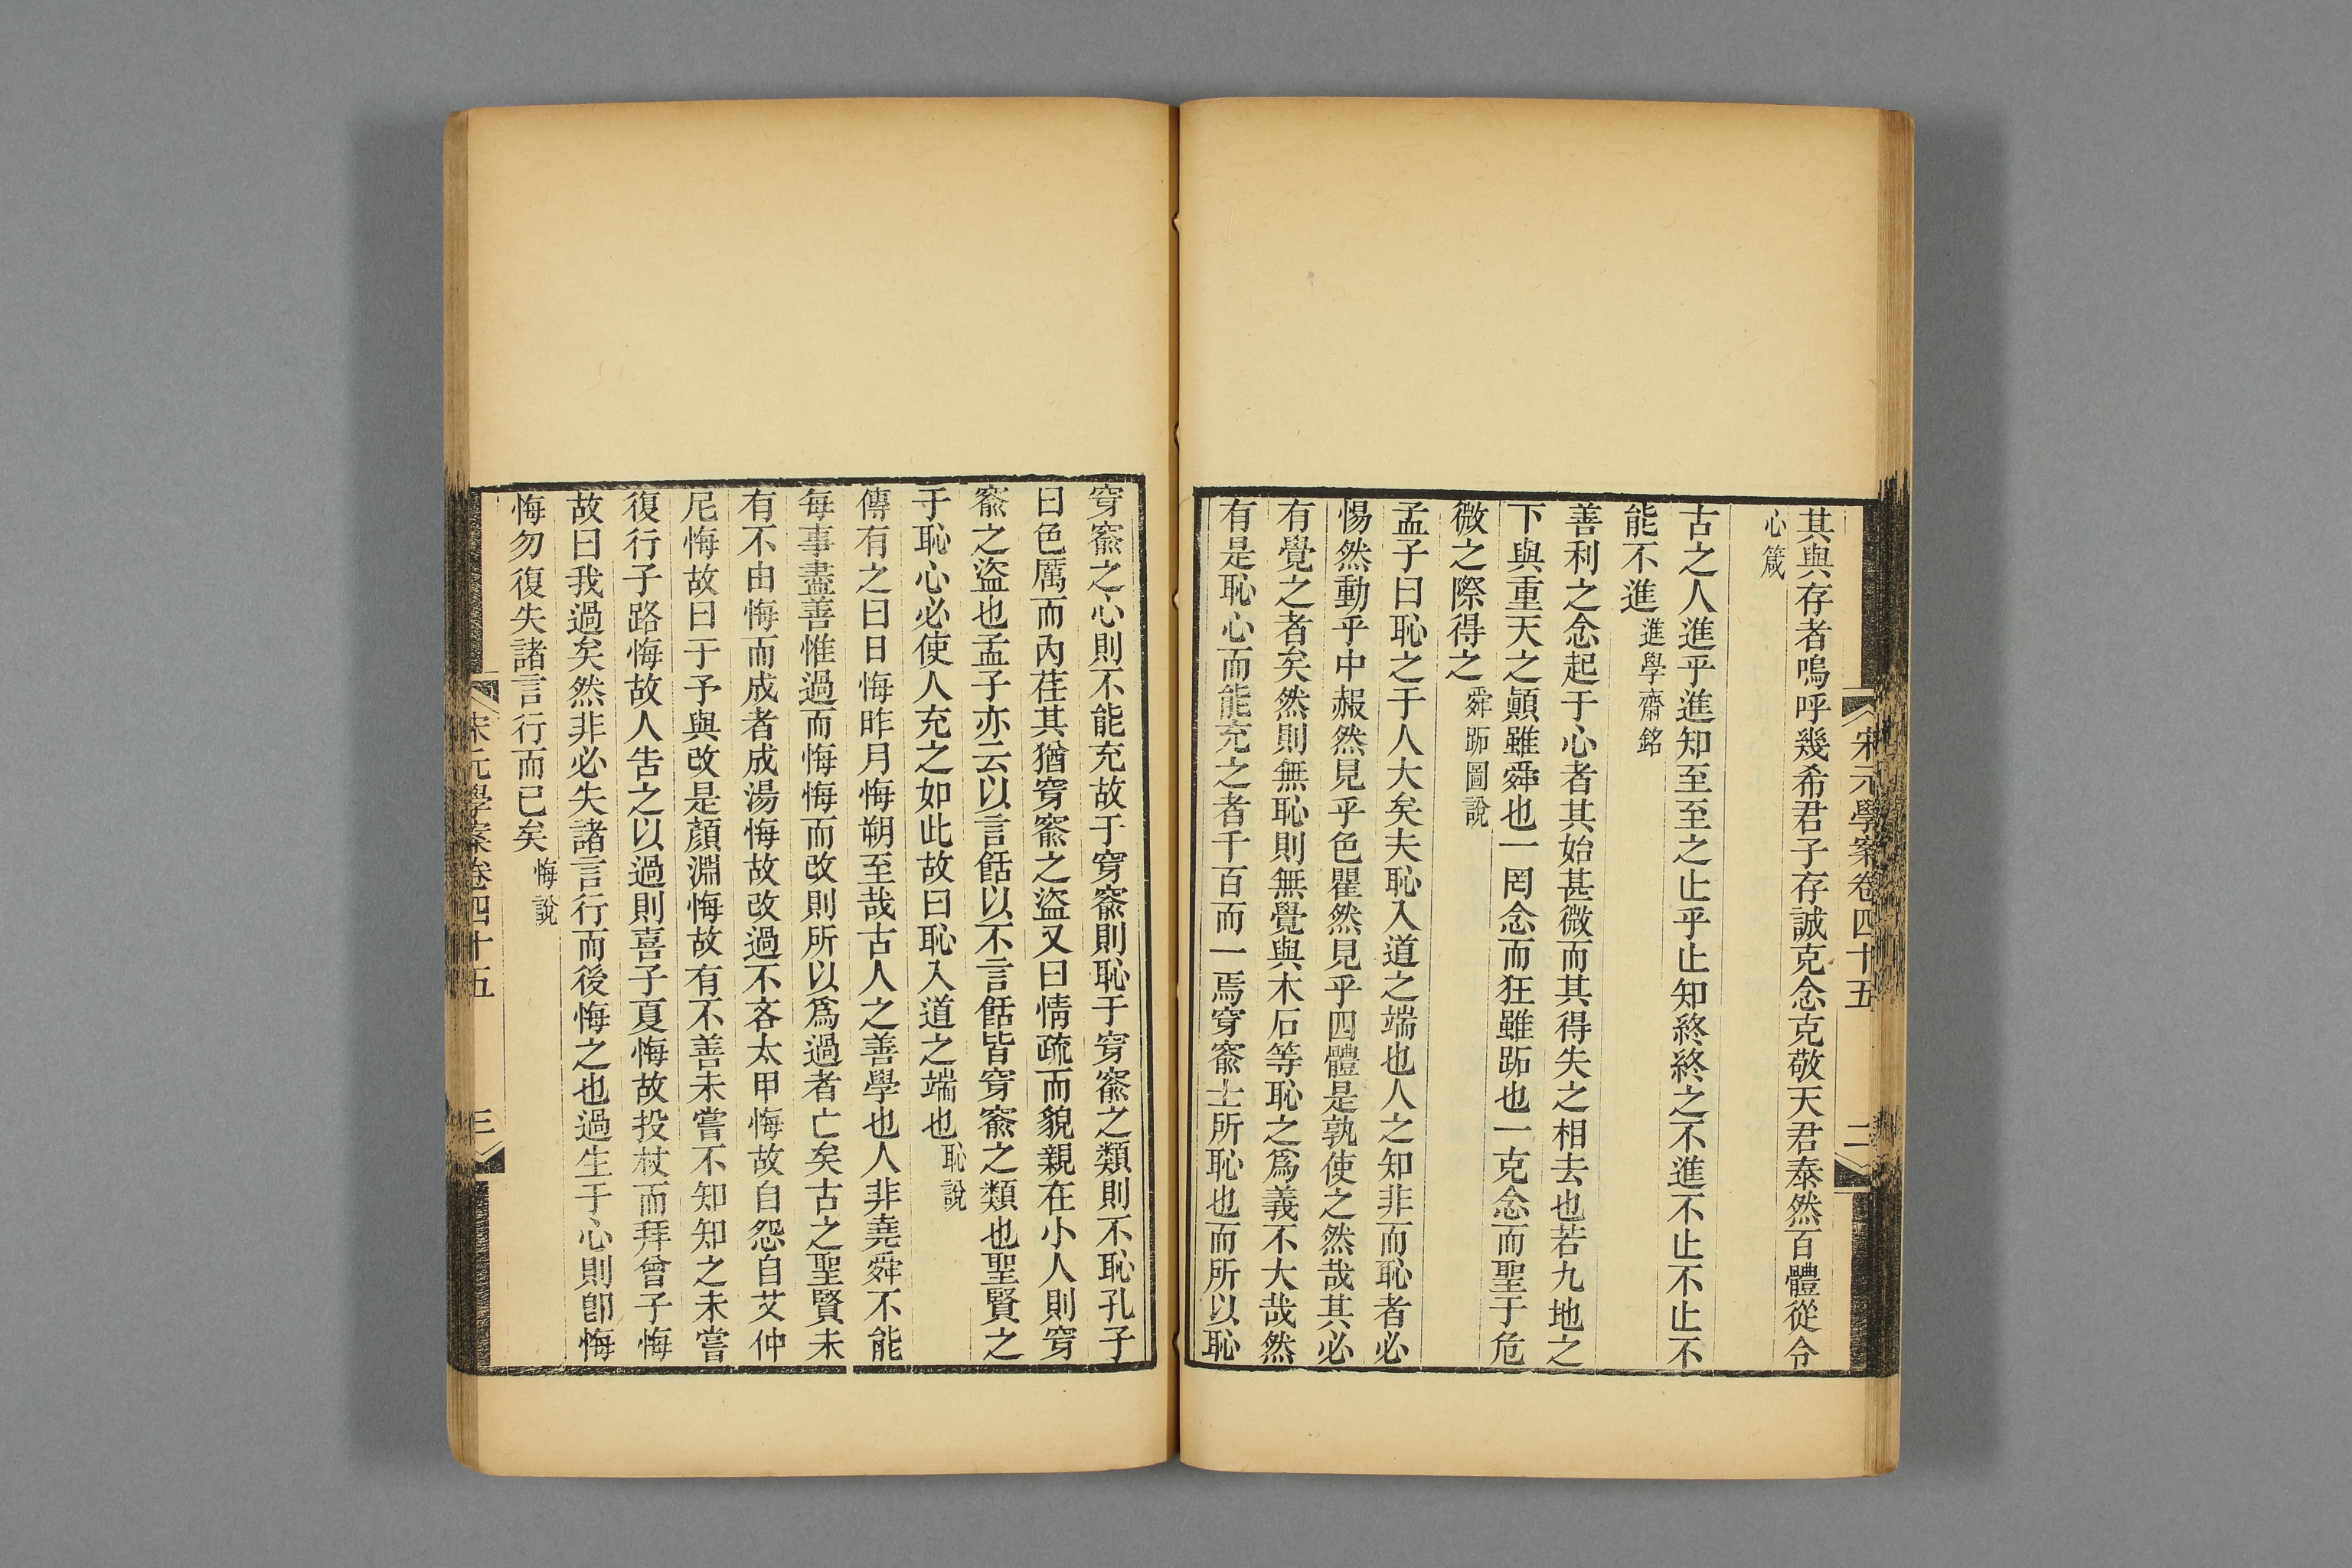 宋元學案卷四十五 二
其與存者嗚呼幾希君子存誠克念克敬天君泰然百體從令
心箴
古之人進乎進知至至之止乎止知終終之不進不止不止不
能不進進學齋銘
善利之念起于心者其始甚微而其得失之相去也若九地之
下與重天之顚雖舜也一罔念而狂雖跖也一克念而聖于危
微之際得之舜跖圖說
孟子曰恥之于人大矣夫恥入道之端也人之知非而恥者必
惕然動乎中赧然見乎色瞿然見乎四體是孰使之然哉其必
有覺之者矣然則無恥則無覺與木石等恥之爲義不大哉然
有是恥心而能充之者千百而一焉穿窬士所恥也而所以恥
穿窬之心則不能充故于穿窬則恥于穿窬之類則不恥孔子
曰色厲而內荏其猶穿窬之盜又曰情疏而貌親在小人則穿
窬之盜也孟子亦云以言餂以不言餂皆穿窬之類也聖賢之
于恥心必使人充之如此故曰恥入道之端也恥說
傳有之曰日悔昨月悔朔至哉古人之善學也人非堯舜不能
每事盡善惟過而悔悔而改則所以爲過者亡矣古之聖賢未
有不由悔而成者成湯悔故改過不吝太甲悔故自怨自艾仲
尼悔故曰于予與改是顏淵悔故有不善未嘗不知知之未嘗
復行子路悔故人告之以過則喜子夏悔故投杖而拜曾子悔
故曰我過矣然非必失諸言行而後悔之也過生于心則卽悔
悔勿復失諸言行而已矣悔說
宋元學案卷四十五 三